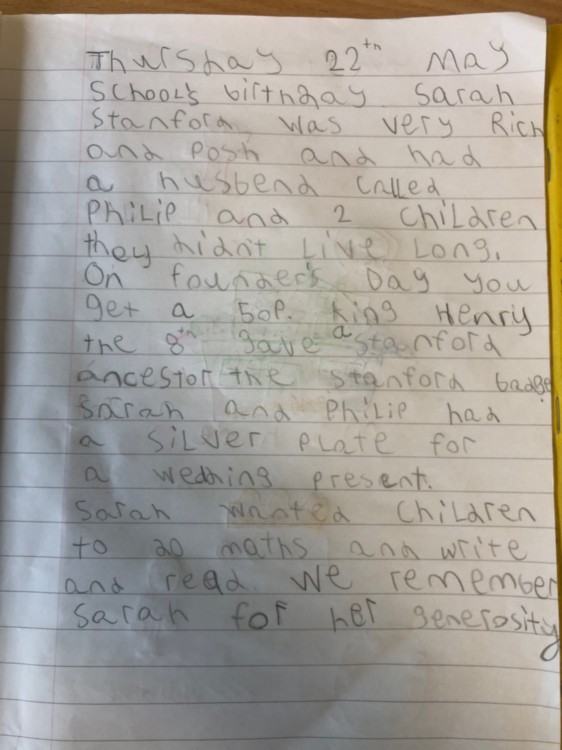 Thursday 22th May
School's birthday Sarah
Stanford, was very Rich
and Posh and had
a husbend called
Philip and 2 children
they didn't Live Long.
On founder's Day you
get a 50p. King Henry
the 8th gave a stanford
ancestor the stanford badge
Sarah and Philip had
a silver plate for
a wedding present.
Sarah wanted children
to do maths and write
and read. We remember
Sarah for her generosity